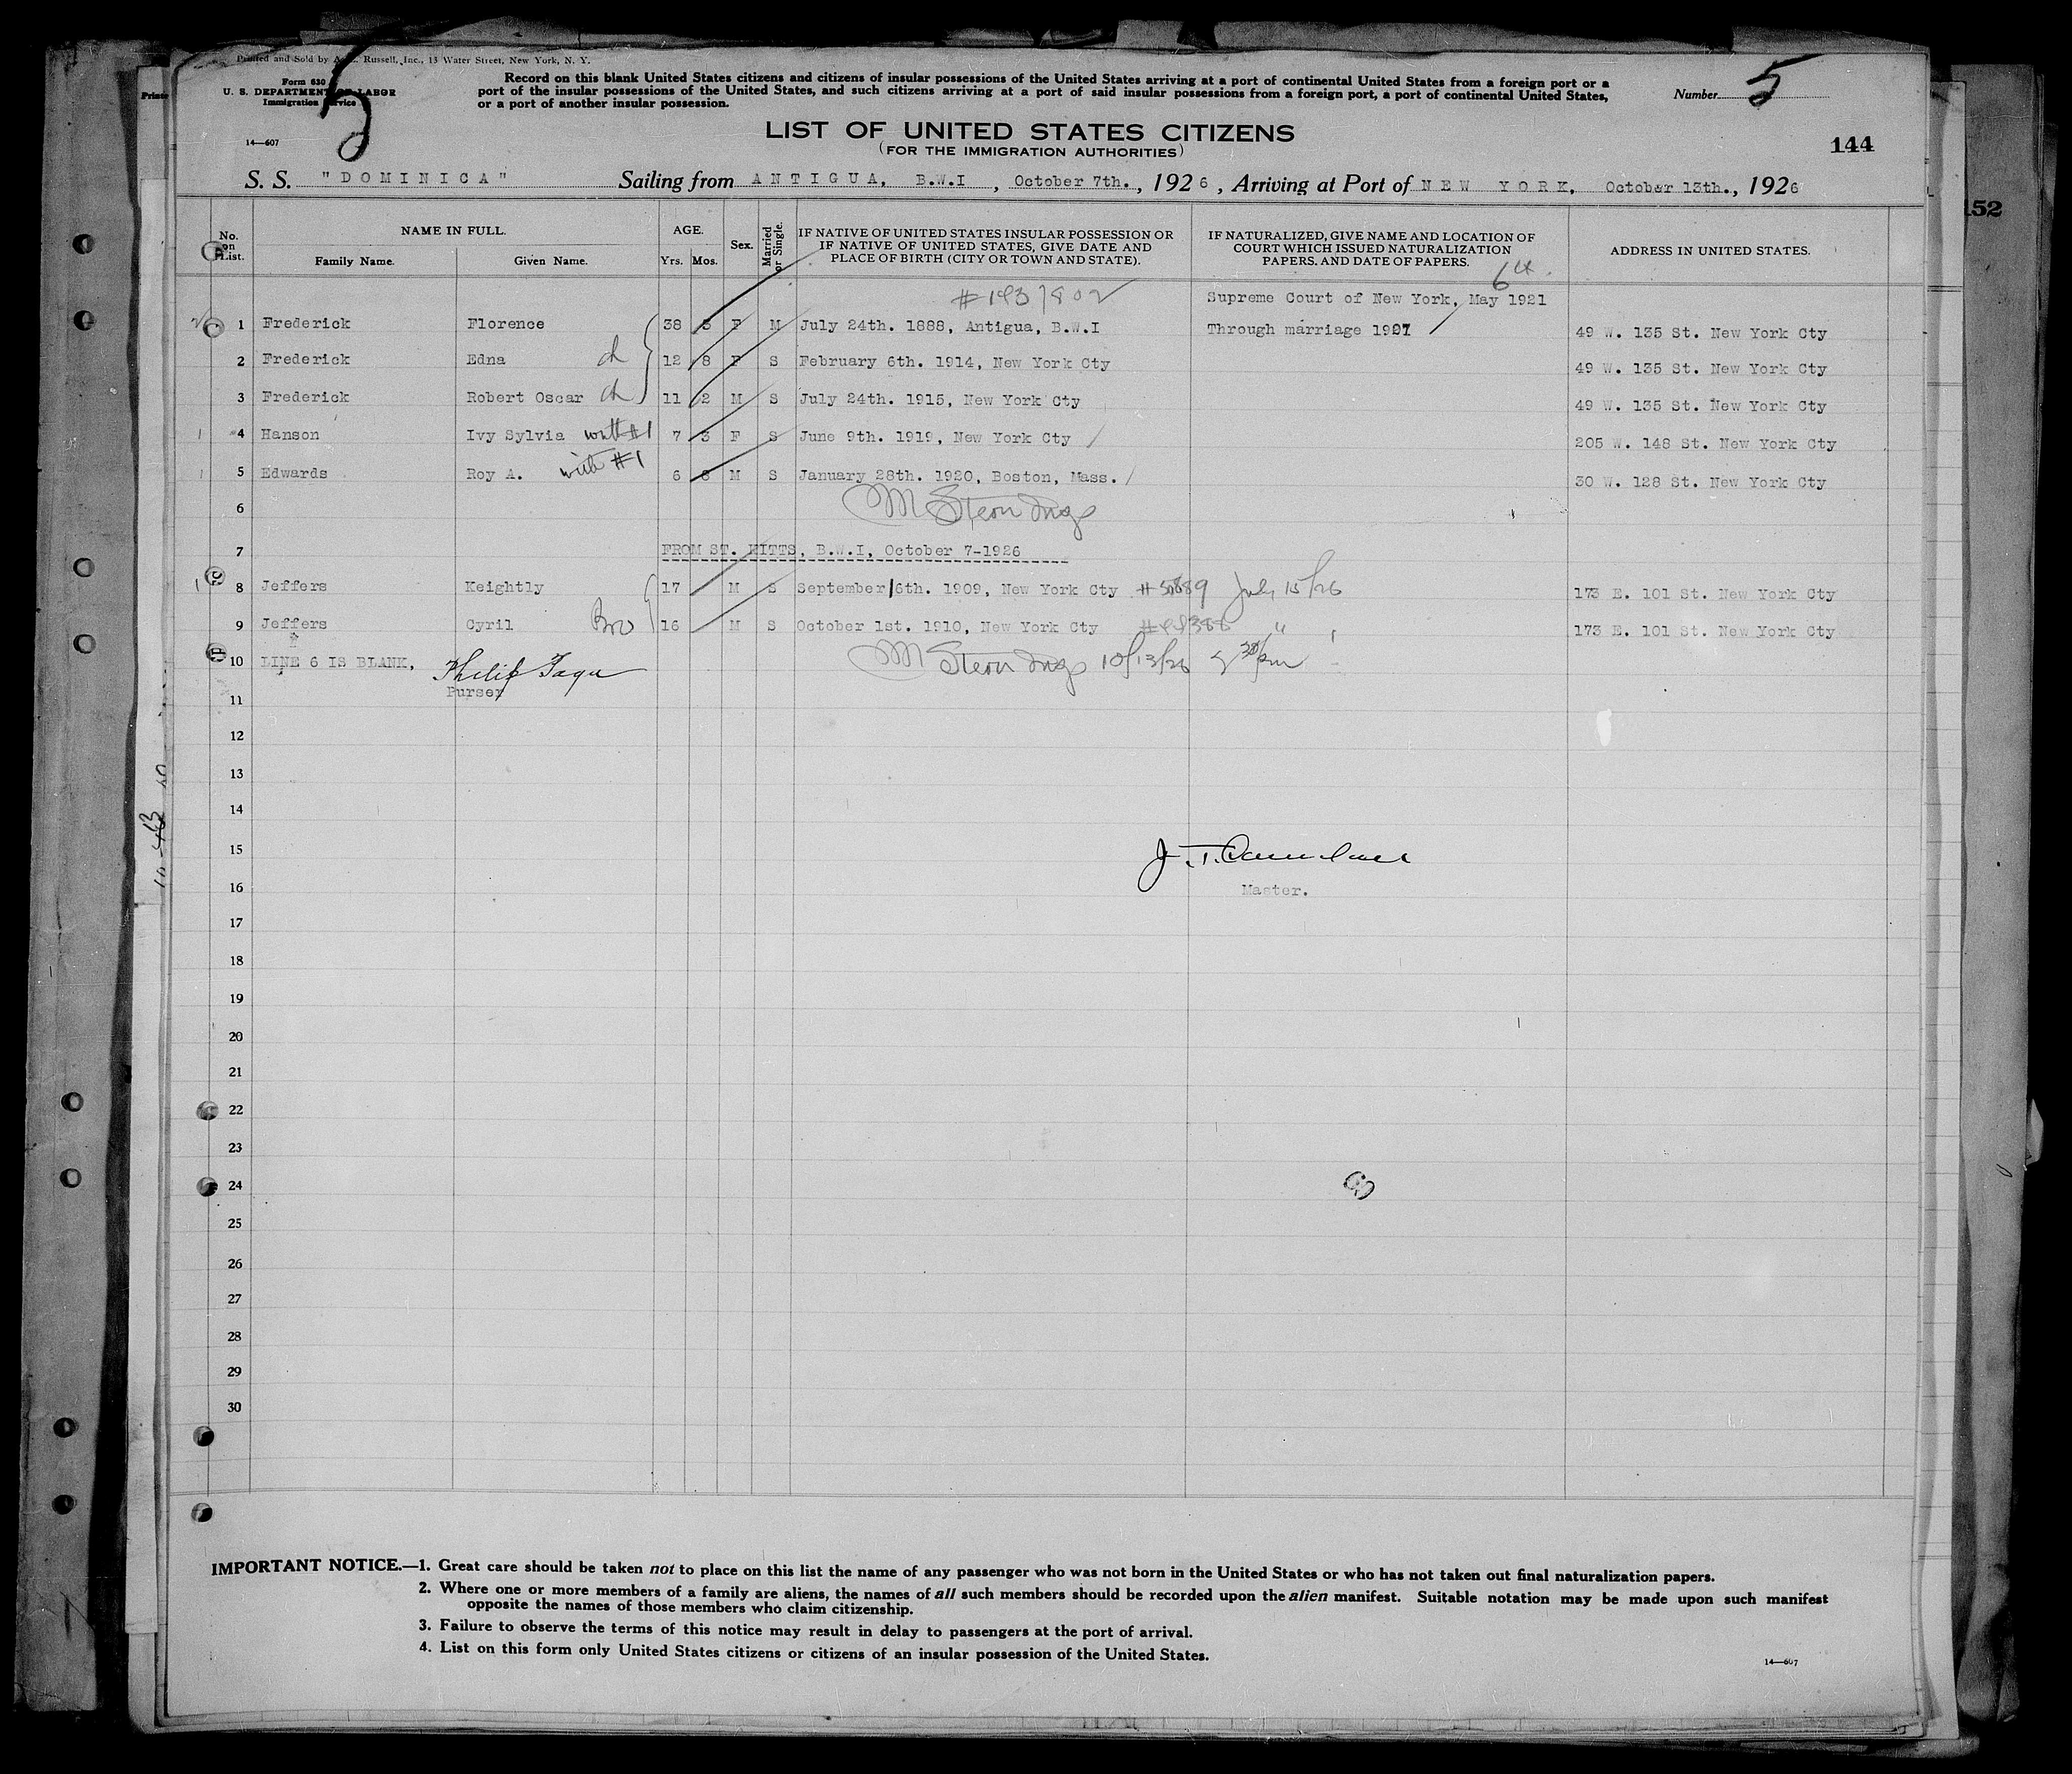 Printed and Sold by A. Russell, Inc., 13 Water Street, New York, N. Y.
Form 630
U. S. DEPARTMENT OF LABOR
Immigration Service
14—607
5
Record on this blank United States citizens and citizens of insular possessions of the United States arriving at a port of continental United States from a foreign port or a
port of the insular possessions of the United States, and such citizens arriving at a port of said insular possessions from a foreign port, a port of continental United States,
or a port of another insular possession.
Number 5
LIST OF UNITED STATES CITIZENS
(FOR THE IMMIGRATION AUTHORITIES)
144
152
S. S. "DOMINICA" Sailing from ANTIGUA, B.W.I, October 7th., 1926, Arriving at Port of NEW YORK, October 13th., 1926
No. on List. NAME IN FULL. AGE. Sex. Married or Single. IF NATIVE OF UNITED STATES INSULAR POSSESSION OR IF NATIVE OF UNITED STATES, GIVE DATE AND PLACE OF BIRTH (CITY OR TOWN AND STATE). IF NATURALIZED, GIVE NAME AND LOCATION OF COURT WHICH ISSUED NATURALIZATION PAPERS. AND DATE OF PAPERS. ADDRESS IN UNITED STATES.
Family Name. Given Name. Yrs. Mos.
Supreme Court of New York, May 1921
1 Frederick Florence 38 3 F M July 24th. 1888, Antigua, B.W.I Through marriage 1907 49 W. 135 St. New York Cty
2 Frederick Edna ch 12 8 F S February 6th. 1914, New York Cty 49 W. 135 St. New York Cty
3 Frederick Robert Oscar ch 11 2 M S July 24th. 1915, New York Cty 49 W. 135 St. New York Cty
4 Hanson Ivy Sylvia with #1 7 3 F S June 9th. 1919, New York Cty 205 W. 148 St. New York Cty
5 Edwards Roy A. with #1 6 8 M S January 28th. 1920, Boston, Mass. 30 W. 128 St. New York Cty
6 M Stern Insp
7 FROM ST. KITTS, B.W.I, October 7-1926
8 Jeffers Keightly 17 M S September 6th. 1909, New York Cty July 15/26 173 E. 101 St. New York Cty
9 Jeffers Cyril Bro 16 M S October 1st. 1910, New York Cty " " 173 E. 101 St. New York Cty
10 LINE 6 IS BLANK, M Stern Insp 10/13/26 5 30/pm
Purser
11
12
13
14
15
16 Master.
17
18
19
20
21
22
23
24
25
26
27
28
29
30
IMPORTANT NOTICE.—1. Great care should be taken not to place on this list the name of any passenger who was not born in the United States or who has not taken out final naturalization papers.
2. Where one or more members of a family are aliens, the names of all such members should be recorded upon the alien manifest. Suitable notation may be made upon such manifest
opposite the names of those members who claim citizenship.
3. Failure to observe the terms of this notice may result in delay to passengers at the port of arrival.
4. List on this form only United States citizens or citizens of an insular possession of the United States.
14—607